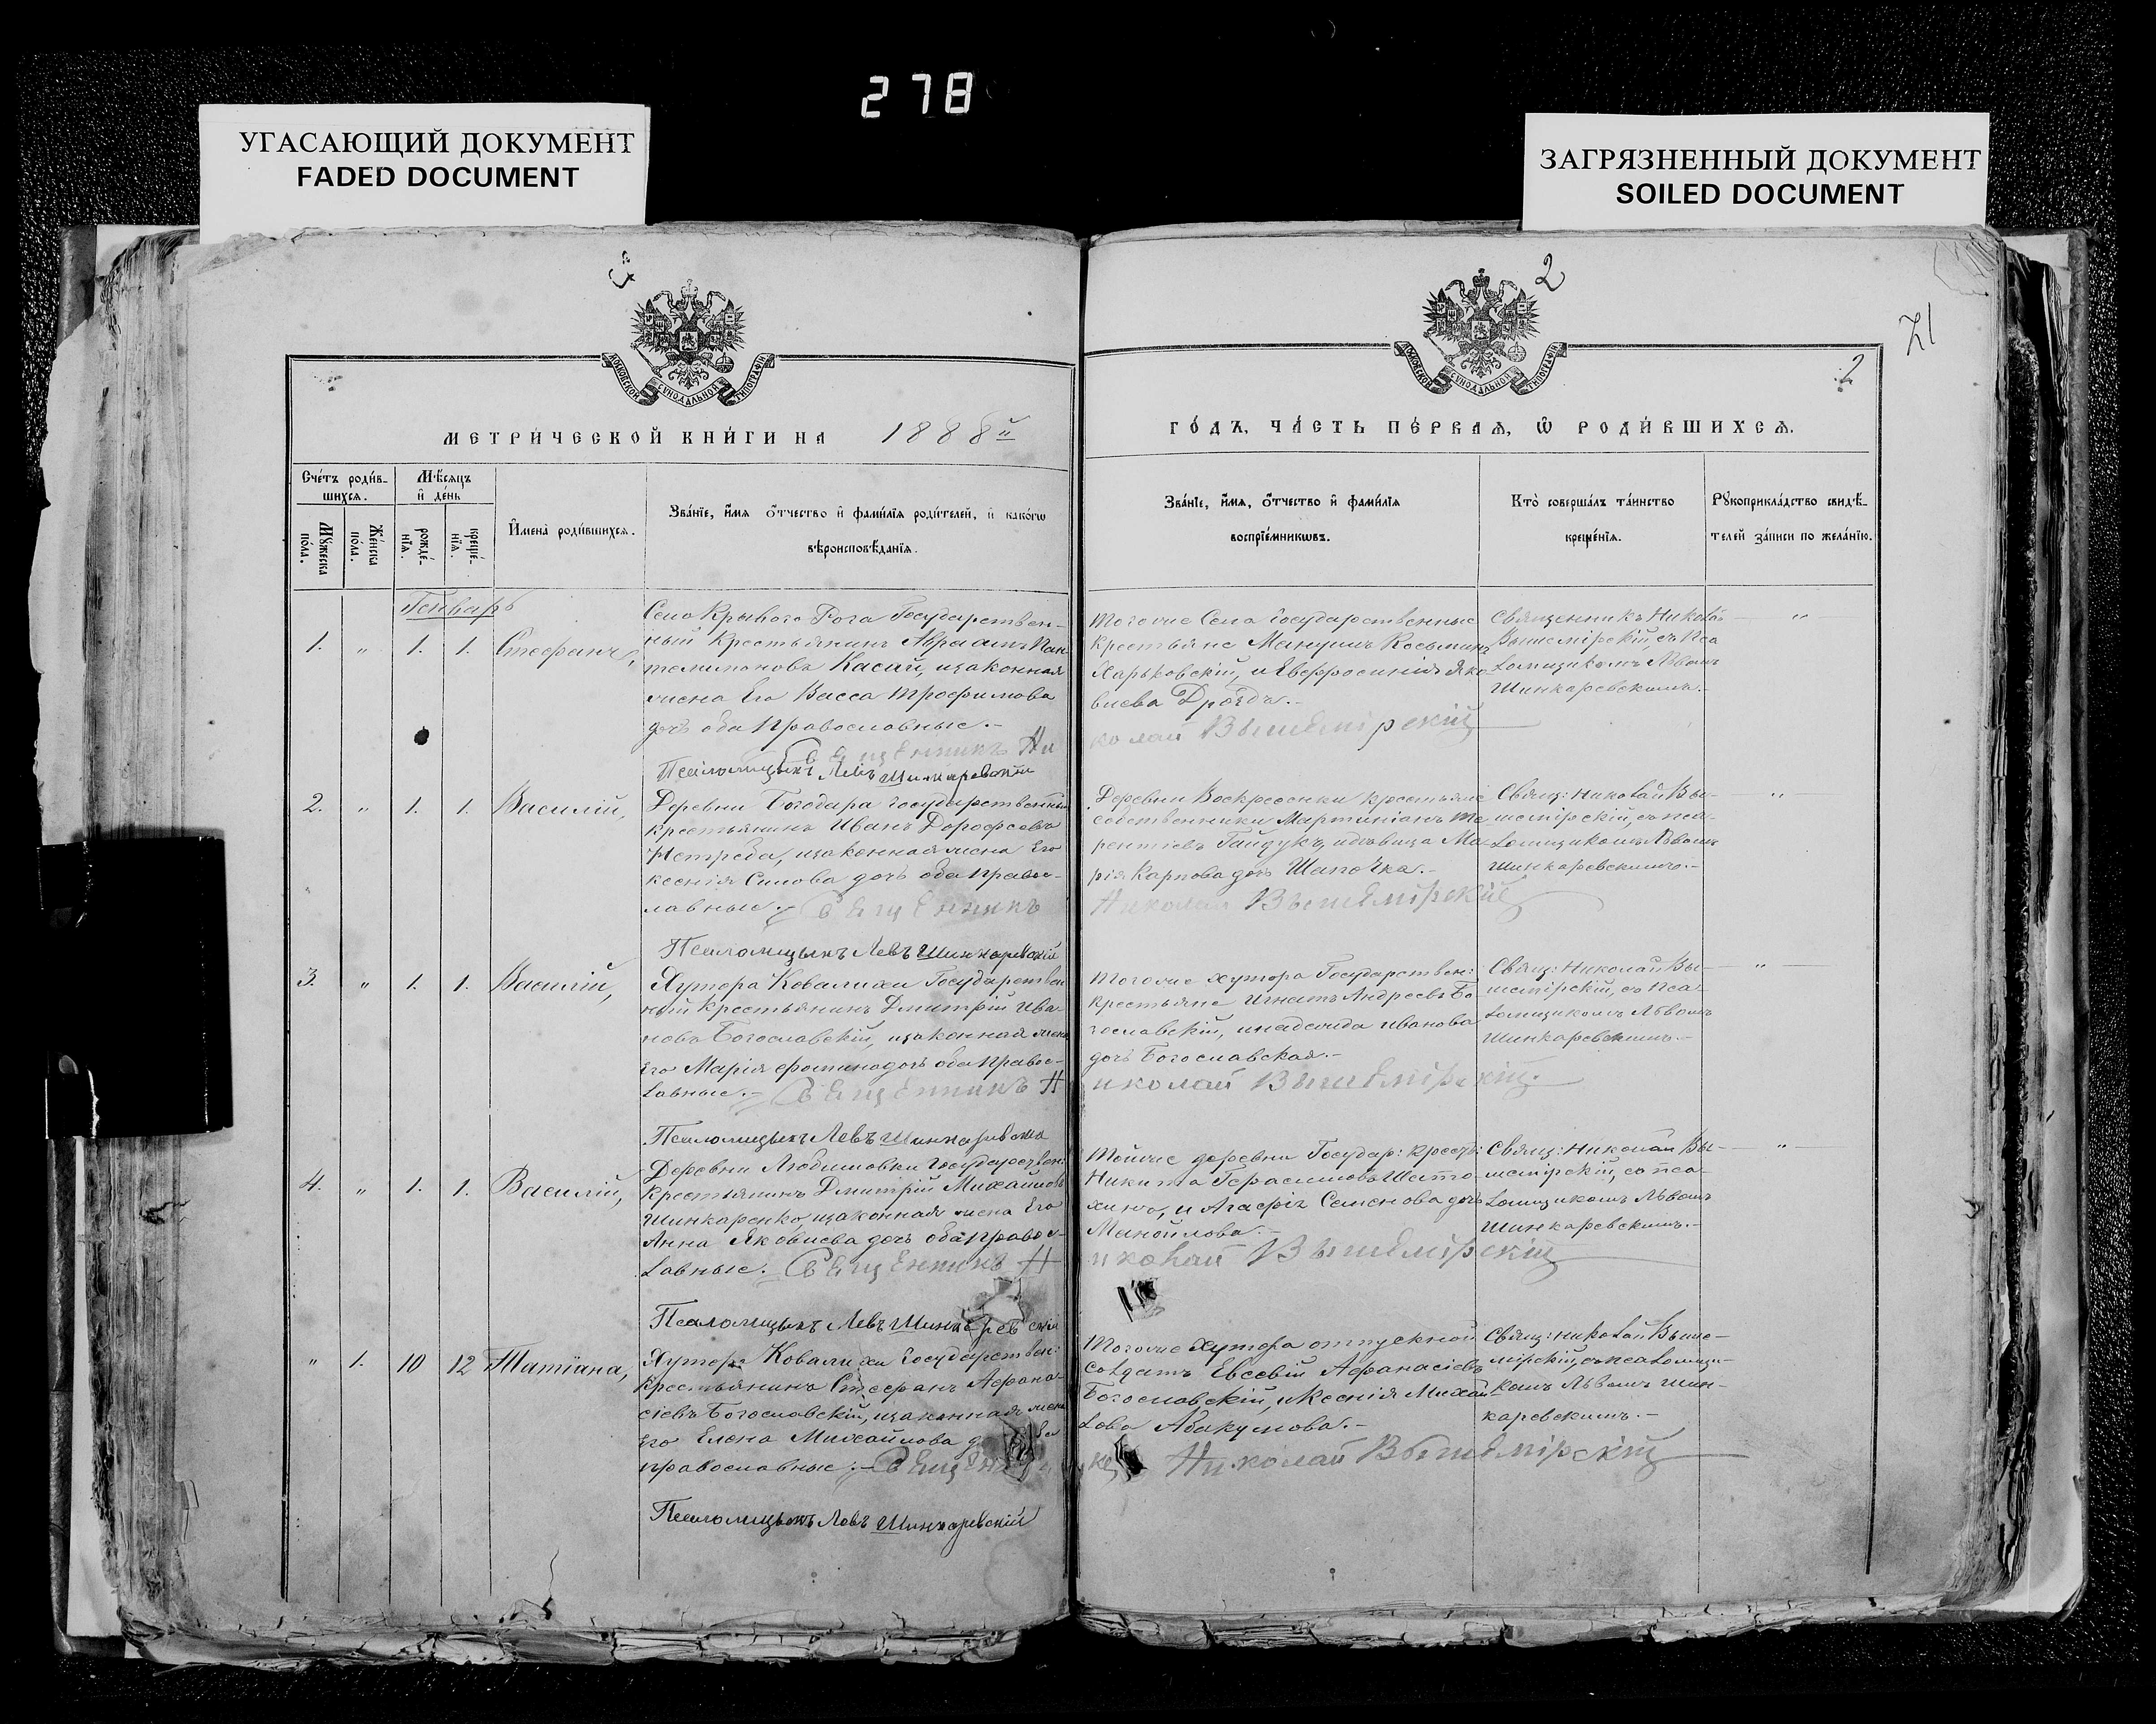 278
УГАСАЮЩИЙ ДОКУМЕНТ
FADED DOCUMENT
ЗАГРЯЗНЕННЫЙ ДОКУМЕНТ
SOILED DOCUMENT
2
21
2
МОСКОВСКОЙ СУНОДАЛЬНОЙ ТИПОГРАФІИ
МОСКОВСКОЙ СУНОДАЛЬНОЙ ТИПОГРАФІИ
МЕТРИ́ЧЕСКОЙ КНИ́ГИ НА 1888й
ГО́ДЪ, ЧА́СТЬ ПЕ́РВАѦ, Ѡ РОДИ́ВШИХСѦ.
Сче́тъ роди́в-
шихсѧ.
Мѣ́сѧцъ
и҆ де́нь
Мꙋ́жеска
по́ла.
Же́нска
по́ла.
рожде́-
нїѧ.
креще́-
нїѧ.
И҆мена̀ роди́вшихсѧ.
Зва́нїе, и҆́мѧ ѻ҆́тчество и҆ фами́лїѧ роди́телей, и҆ како́гѡ
вѣроисповѣ́данїѧ.
Зва́нїе, и҆́мѧ, ѻ҆́тчество и҆ фами́лїѧ
воспрїе́мникѡвъ.
Кто̀ соверша́лъ та́инство
креще́нїѧ.
Рꙋкоприкла́дство свидѣ́-
телей за́писи по жела́нїю.
Генварь
1. " 1. 1. Стефанъ,
Село Крываго Рога Государствен-
ный крестьянинъ Авраамъ Пан
телимоновъ Касій, изаконная
жена Его Васса Трофимова
дочь оба православные.-
Священникъ Ни
Псаломщыкъ Левъ Шинкаревскій
Тогоже Села государственные
Крестьяне Мануилъ Косьминъ
Харьковскій, и Евфросинія Яко
влева Дроздъ.-
колай Вышемірскій
Священникъ Николай
Вышемірскій, съ Пса
ломщикомъ Львомъ
Шинкаревскимъ.-
"
2. " 1. 1. Василій,
Деревни Богодара государственный
крестьянинъ Иванъ Дорофеевъ
Ястреба, изаконная жена Его
Ксенія Силова дочь оба правос-
лавные.- Священникъ
Псаломщыкъ Левъ Шинкаревскій
Деревни Воскресенки крестьяне
собственники Мартиніанъ Те
рентіевъ Гайдукъ, идѣвица Ма-
рія Карпова дочь Шапочка.-
Николай Вышемірскій
Свящ: Николай Вы-
шемірскій, съ пса-
ломщикомъ Львомъ
Шинкаревскимъ.-
"
3. " 1. 1. Василій,
Хутора Ковалихи Государствен
ный крестьянинъ Дмитрій Ива-
новъ Богославскій, изаконная жена
Его Марія Фомина дочь оба правос-
лавные.- Священникъ Н
Псаломщыкъ Левъ Шинкаревскій
Тогоже хутора Государствен:
крестьяне Игнатъ Андреевъ Бо-
гославскій, инадежда Иванова
дочь Богославская.-
иколай Вышемірскій.
Свящ: Николай Вы-
шемірскій, съ Пса-
ломщикомъ Львомъ
Шинкаревскимъ.-
"
4. " 1. 1. Василій,
Деревни Любимовки Государствен:
крестьянинъ Дмитрій Михайловъ
Шинкаренко, изаконная жена Его
Анна Яковлева дочь оба правос-
лавные. Священникъ Н
Псаломщыкъ Левъ Шинкаревскій
Тойже деревни Государ: крестъ:
Никита Герасимовъ
и Агафія Семенова дочь
Манойлова.-
иколай Вышемірскій
Свящ: Николай Вы-
шемірскій, съ пса-
ломщикомъ Львомъ
Шинкаревскимъ.-
"
" 1. 10 12 Татіана,
Хутора Ковалихи Государствен:
крестьянинъ Стефанъ Афана-
сіевъ Богославскій, изаконная жена
Его Елена Михайлова
православные.-
Псаломщыкъ Левъ Шинкаревскій
Тогоже хутора отпускной
солдатъ Евсевій Афанасіевъ
Богославскій, иКсенія Михай
лова Абакумова.-
Николай Вышемірскій
Свящ: Николай Выше-
мірскій, съ псаломщи-
комъ Львомъ Шин-
каревскимъ.-